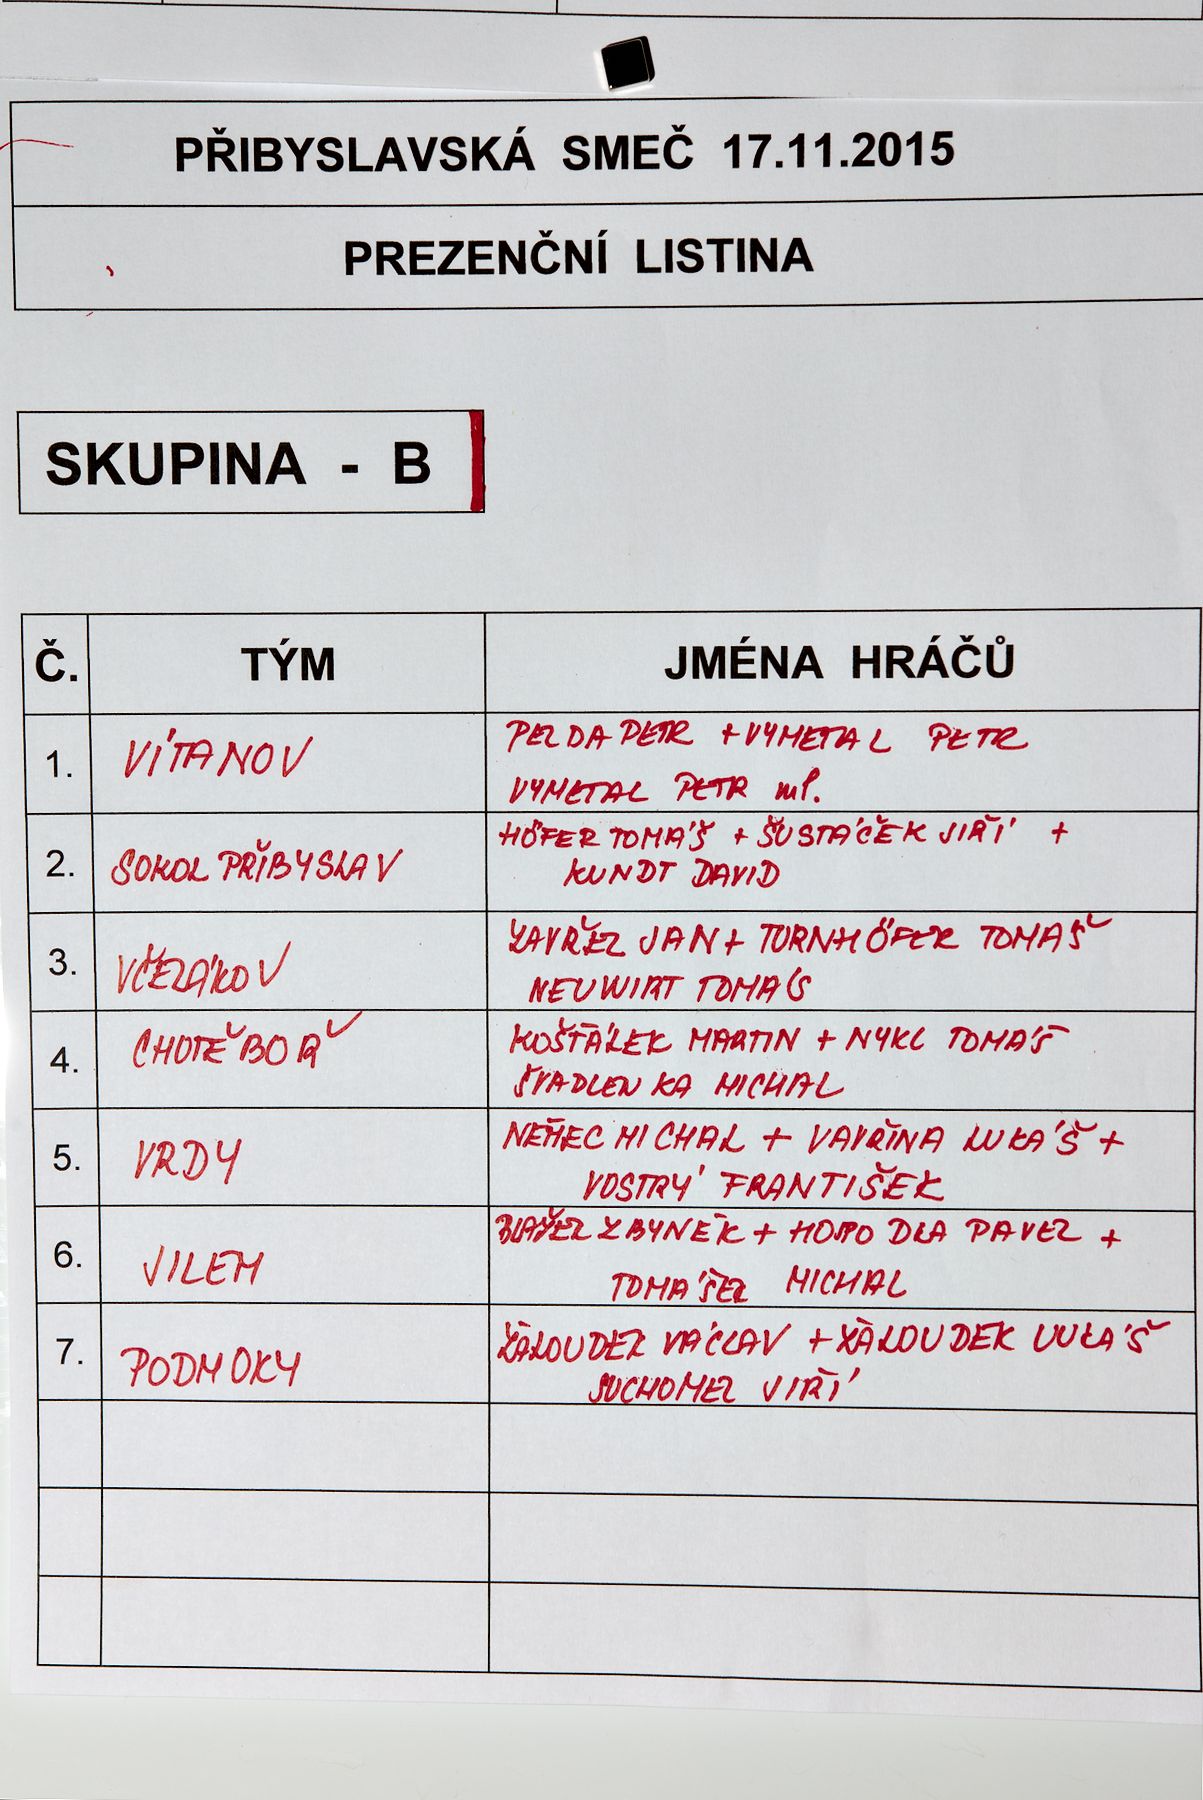 PŘIBYSLAVSKÁ SMEČ 17.11.2015
PREZENČNÍ LISTINA
SKUPINA - B
Č. TÝM JMÉNA HRÁČŮ
1. VÍTANOV PELDA PETR + VYMETAL PETR
VYMETAL PETR ml.
2. SOKOL PŘIBYSLAV HÖFER TOMÁŠ + ŠUSTÁČEK JIŘÍ +
KUNDT DAVID
3. VČELÁKOV ZAVŘEL JAN + TURNHÖFER TOMÁŠ
NEUWIRT TOMÁŠ
4. CHOTĚBOŘ KOŠŤÁLEK MARTIN + NYKL TOMÁŠ
ŠVADLENKA MICHAL
5. VRDY NĚMEC MICHAL + VAVŘINA LUKÁŠ +
VOSTRÝ FRANTIŠEK
6. JILEM BLAŽEL ZBYNĚK + HOSPODLA PAVEL +
TOMÁŠEL MICHAL
7. PODMOKY ŽALOUDEK VÁCLAV + ŽALOUDEK LUKÁŠ
SUCHOMEL JIŘÍ